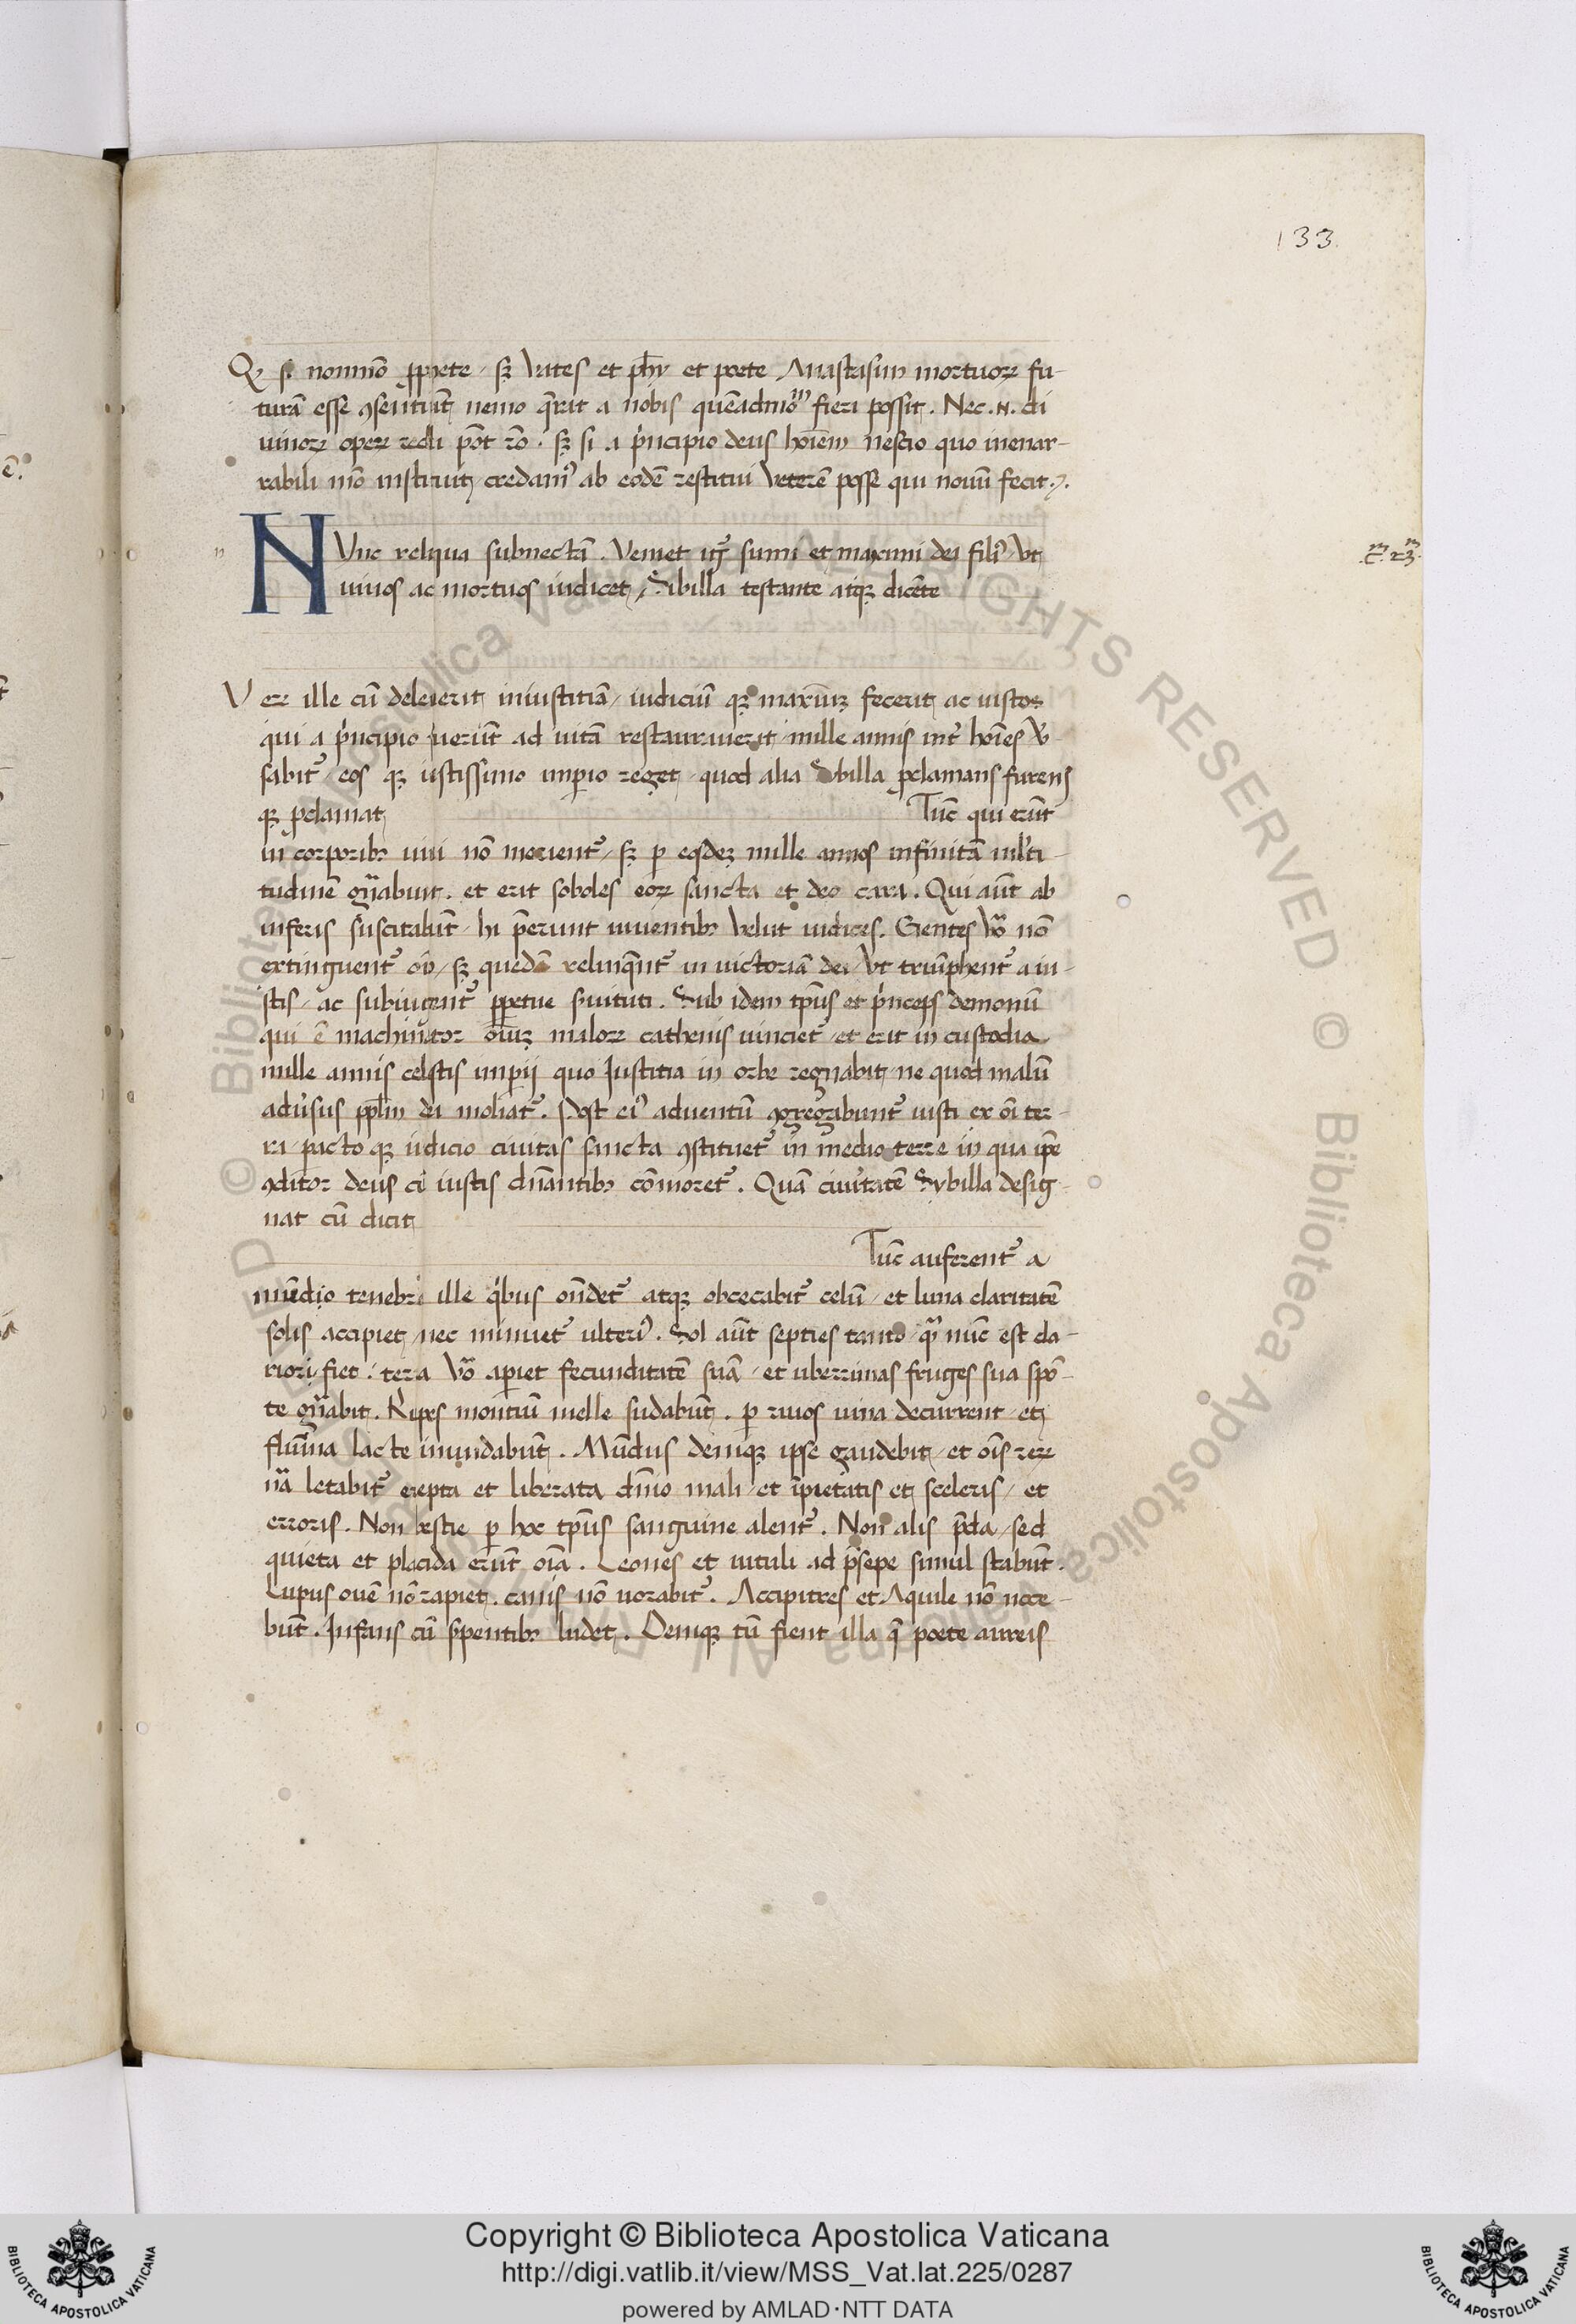 133
Qꝫ si nonmō ꝓphete, sꝫ vates et phy et poete Anastasim mortuoꝝ fu-
turā esse ꝯsentiūt nemo q̄rat a nobis quēadmōm fieri possit. Nec .n. di
uinoꝝ opeꝝ reddi pōt rō. sꝫ si a pͥncipio deus hoīem nescio quo inenar-
rabili mō instituit, credamꝰ ab eodē restitui veterē posse qui nouū fecit.
NVnc reliqua subnectā. Veniet itꝫ sumi et maximi dei filiꝰ, vt
uiuos ac mortuos iudicet, Sibilla testante atqꝫ dicēte
.c. 23.
Veꝝ ille cū deleuerit iniustitiā, iudiciū qꝫ maximū fecerit, ac iustos
qui a pͥncipio fuerūt ad uitā restaurauerit, mille annis int̄ hoīes v̄-
sabit᷑, eos qꝫ iustissimo imꝑio reget, quod alia Sibilla ꝓclamans furens
qꝫ ꝓclamat,
Tūc qui erūt
in corporibꝫ uiui nō morient᷑, sꝫ ꝑ eosdeꝫ mille annos infinitā mlti-
tudinē gn̄abunt. et erit soboles eoꝝ sancta et deo cara. Qui aūt ab
inferis suscitabūt, hi p̄erunt uiuentibꝫ velut iudices. Gentes v̄o nō
extinguent᷑ oīo, sꝫ quedā relinquēt᷑ in uictoriā dei, vt triūphent᷑ a iu-
stis, ac subiugent᷑ ꝑpetue ẜuituti. Sub idem tp̄us et pͥnceps demonū
qui ē machinator oīuꝫ maloꝝ cathenis uinciet᷑, et erit in custodia
mille annis celestis imꝑij quo Iustitia in orbe regnabit, ne quod malū
adūsus pplm dei moliat᷑. Post eiꝰ aduentū ꝯgregabunt᷑ iusti ex oī ter-
ra, pacto qꝫ iudicio ciuitas sancta ꝯstituet᷑ in medio terre in qua ipē
ꝯditor deus cū iustis dn̄antibꝫ cōmoret᷑. Quā ciuitatē Sybilla desig-
nat cū dicit,
Tūc auferent᷑ a
mūdo tenebre ille qͥbus ōndet᷑ atqꝫ obcecabit᷑ celū, et luna claritatē
solis accipiet, nec minuet᷑ ulteriꝰ. Sol aūt septies tanto qm̄ nūc est cla-
rior fiet: terra v̄o aꝑiet fecunditatē suā, et uberrimas fruges sua spō-
te gn̄abit. Rupes montiū melle sudabūt. ꝑ riuos uina decurrent, et
flumīna lacte inundabūt. Mūdus deniqꝫ ipse gaudebit, et oīs reꝝ
nā letabit᷑ erepta et liberata dn̄io mali, et īpietatis et sceleris, et
erroris. Non bestie ꝑ hoc tp̄us sanguine alent᷑. Non alis p̄da, sed
quieta et placida erūt oīa. Leones et uituli ad p̄sepe simul stabūt.
Lupus ouē nō rapiet. canis nō uorabit᷑. Accipitres et Aquile nō noce-
būt. Infans cū ẜpentibꝫ ludet. Deniqꝫ tū fient illa q̄ poete aureis
Copyright © Biblioteca Apostolica Vaticana
http://digi.vatlib.it/view/MSS_Vat.lat.225/0287
powered by AMLAD·NTT DATA
BIBLIOTECA APOSTOLICA VATICANA
BIBLIOTECA APOSTOLICA VATICANA